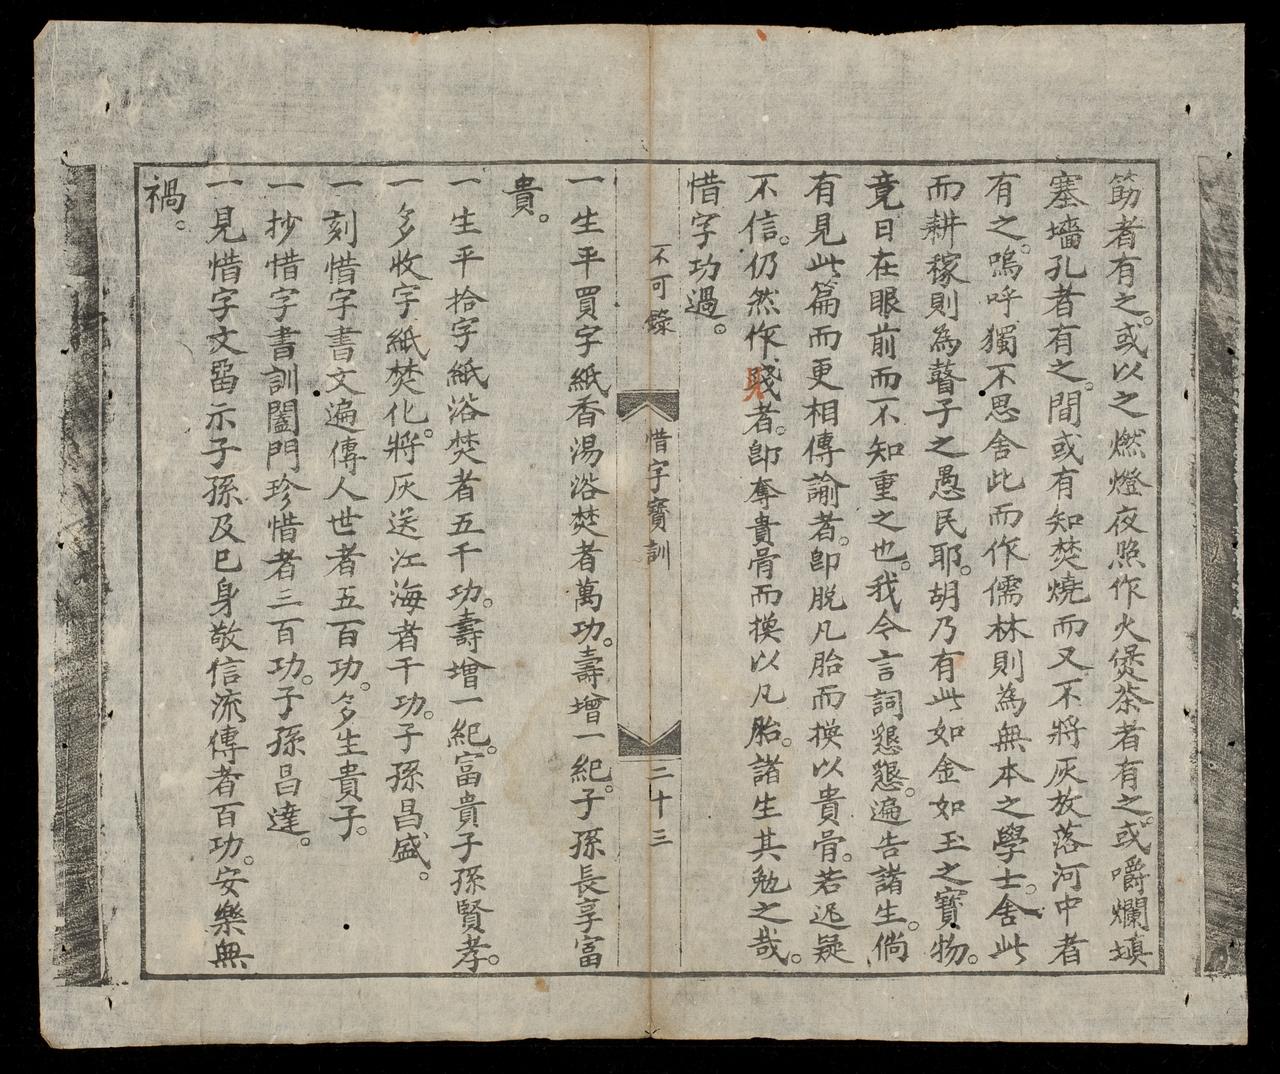 筯者有之。或以之燃燈夜照作火煲茶者有之。或嚼爛填
塞墻孔者有之。間或有知焚燒而又不將灰放落河中者
有之。嗚呼獨不思舍此而作儒林則為無本之學士。舍此
而耕稼則為瞽子之愚民耶。胡乃有此如金如玉之寶物。
竟日在眼前而不知重之也。我今言詞懇懇。遍告諸生。倘
有見此篇而更相傳諭者。即脱凡胎而換以貴骨。若迟疑
不信。仍然作賤者。即奪貴骨而換以凡胎。諸生其勉之哉。
惜字功過。
不可錄
惜字寶訓
二十三
一生平買字紙香湯浴焚者萬功。壽增一紀。子孫長享富
貴。
一生平拾字紙浴焚者五千功。壽增一紀。富貴子孫賢孝。
一多收字紙焚化。將灰送江海者千功。子孫昌盛。
一刻惜字書文遍傳人世者五百功。多生貴子。
一抄惜字書訓闔門珍惜者三百功。子孫昌達。
一見惜字文畱示子孫及已身敬信流傳者百功。安樂無
禍。